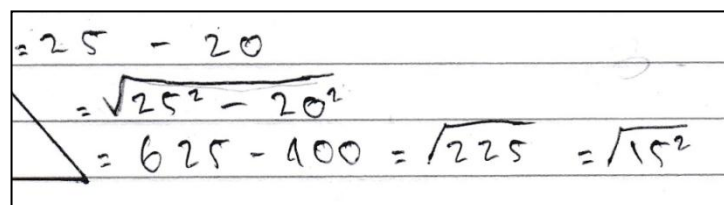 = 25 - 20
= √25² - 20²
= 625 - 400 = √225 = √15²